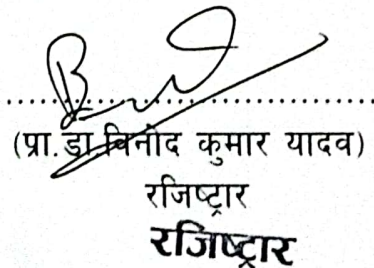 (प्रा.डा.विनोद कुमार यादव)
रजिष्ट्रार
रजिष्ट्रार